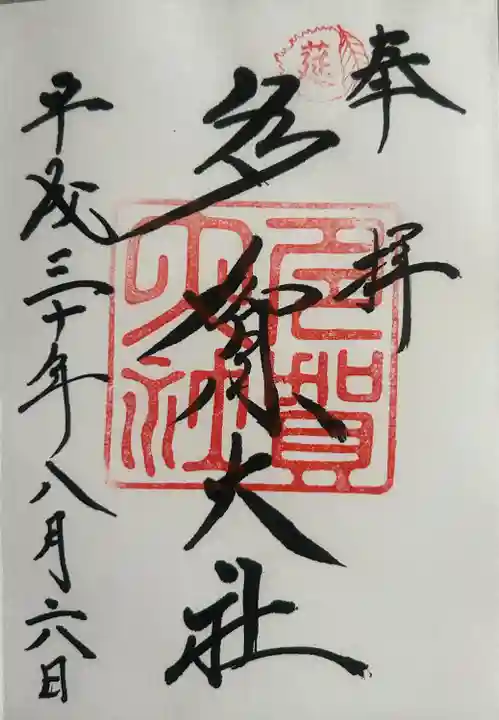 奉拝
多賀大社
平成三十年八月六日
多賀
大社
莚